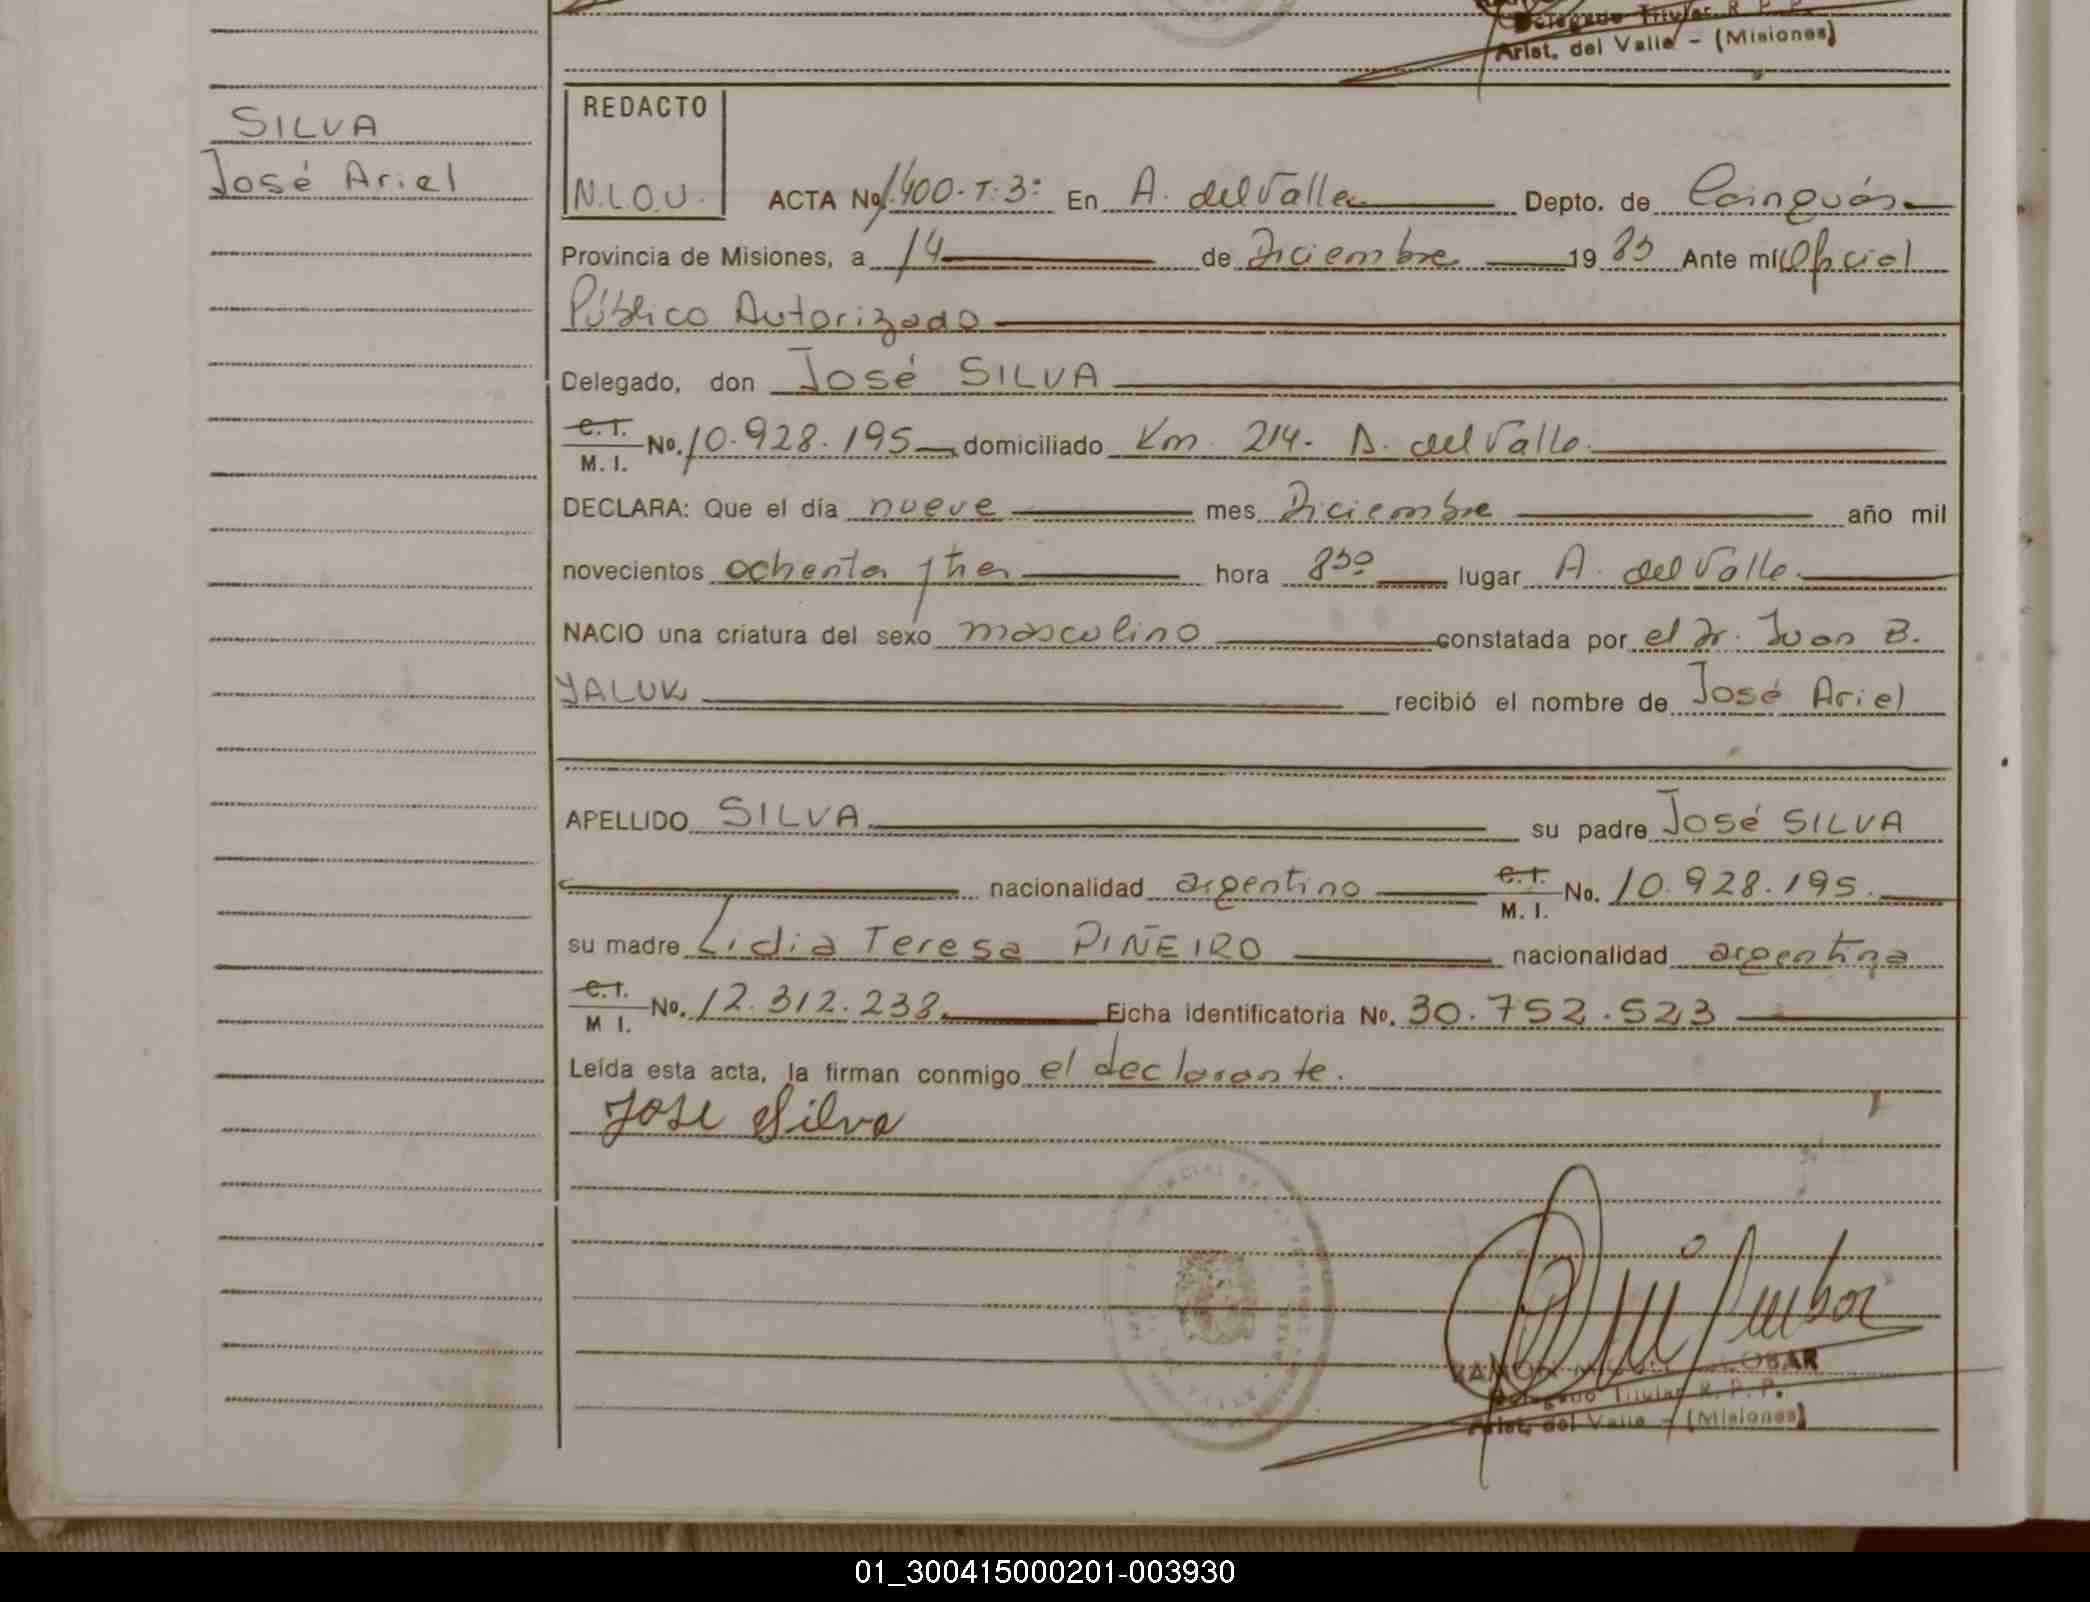 Delegado Titular R. P. P.
Arist. del Valle - (Misiones)
SILVA
José Ariel
REDACTO
N.L.O.U.
ACTA No 1.400-T:3: En A. del Valle Depto. de Cainguás
Provincia de Misiones, a 14 de Diciembre 19 83 Ante mí Oficial
Público Autorizado
Delegado, don José SILVA
C.I. / M. I. No. 10.928.195 domiciliado Km. 214. A. del Valle.
DECLARA: Que el día nueve mes Diciembre año mil
novecientos ochenta y tres hora 8³⁰ lugar A. del Valle.
NACIO una criatura del sexo masculino constatada por el Dr. Juan B.
YALUK recibió el nombre de José Ariel
APELLIDO SILVA su padre José SILVA
nacionalidad argentino C.I. / M. I. No. 10.928.195.
su madre Lidia Teresa PIÑEIRO nacionalidad argentina
C.I. / M I. No. 12.312.238. Ficha identificatoria No. 30.752.523
Leída esta acta, la firman conmigo el declarante.
Jose Silva
RAMON
Delegado Titular R. P. P.
Arist. del Valle - (Misiones)
01_300415000201-003930